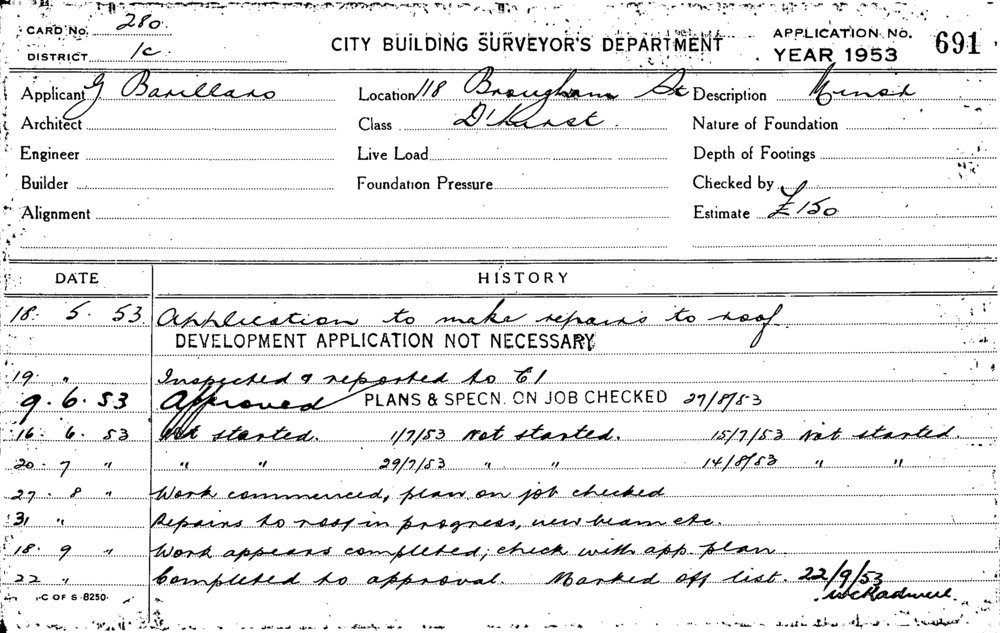 CARD No. 280.
DISTRICT 1c.
CITY BUILDING SURVEYOR'S DEPARTMENT
APPLICATION No. 691
YEAR 1953
Applicant G Barillaro Location 118 Brougham St Description Minor
Architect Class D'hurst. Nature of Foundation
Engineer Live Load Depth of Footings
Builder Foundation Pressure Checked by
Alignment Estimate £150
DATE HISTORY
18. 5. 53 Application to make repairs to roof
DEVELOPMENT APPLICATION NOT NECESSARY
19. " Inspected & reported to E1
9. 6. 53 Approved PLANS & SPECN. ON JOB CHECKED 27/8/53
16. 6. 53 Not started. 1/7/53 Not started. 15/7/53 Not started.
20. 7 " " " 29/7/53 " " 14/8/53 " "
27. 8 " Work commenced, plan on job checked
31 " Repairs to roof in progress, new beam etc.
18. 9 " Work appears completed; check with app. plan
22 " Completed to approval. Marked off list. 22/9/53
C OF S 8250